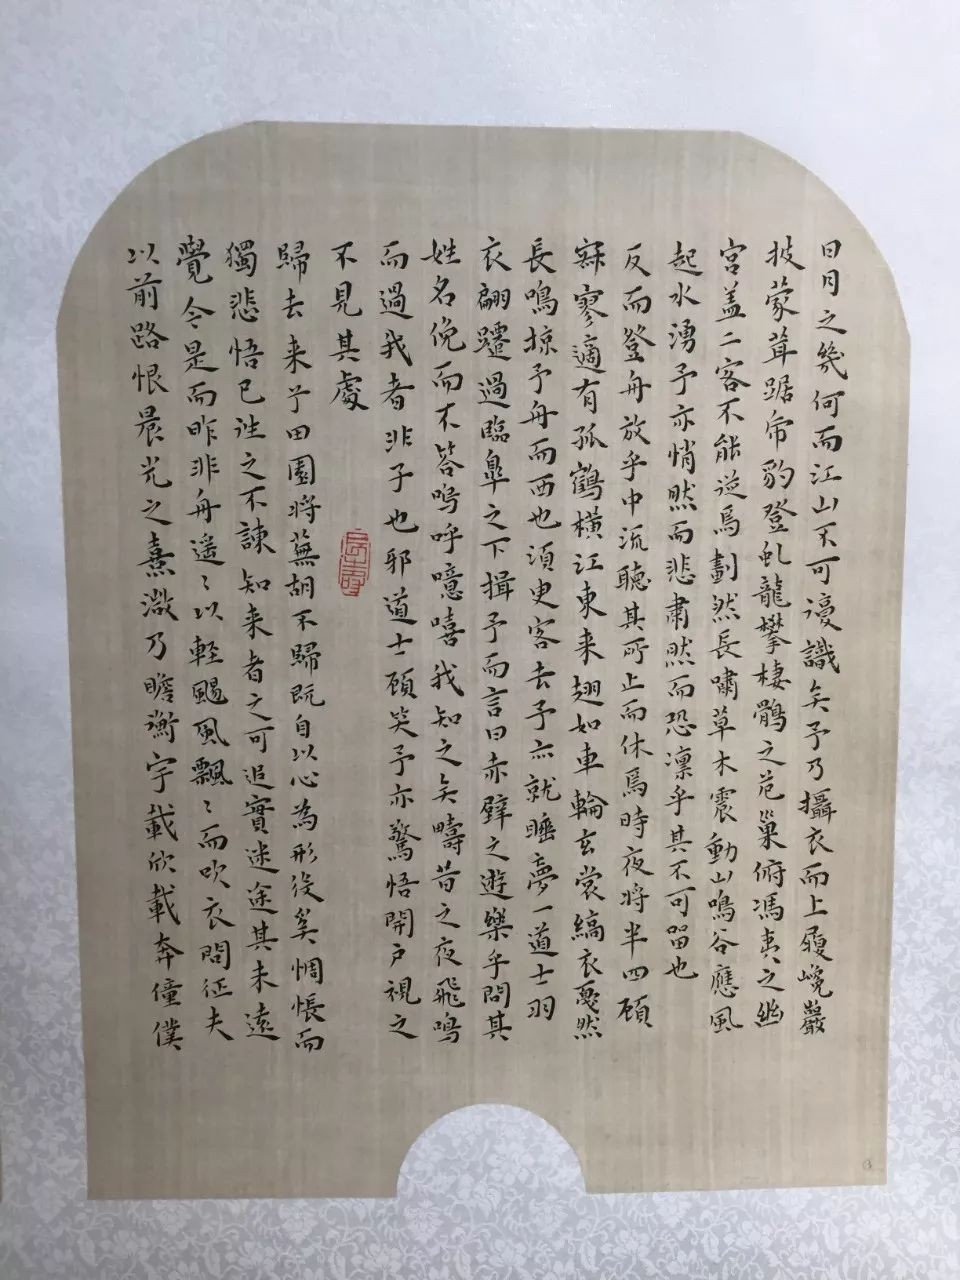 日月之幾何而江山不可復識矣予乃攝衣而上履巉巖
披蒙茸踞虎豹登虬龍攀棲鶻之危巢俯馮夷之幽
宮盖二客不能從焉劃然長嘯草木震動山鳴谷應風
起水湧予亦悄然而悲肅然而恐凛乎其不可留也
反而登舟放乎中流聽其所止而休焉時夜将半四顧
寂寥適有孤鶴橫江東来翅如車輪玄裳縞衣戛然
長鳴掠予舟而西也須臾客去予亦就睡夢一道士羽
衣翩躚過臨皐之下揖予而言曰赤壁之遊樂乎問其
姓名俛而不答嗚呼噫嘻我知之矣疇昔之夜飛鳴
而過我者非子也邪道士顧笑予亦驚悟開户視之
不見其處
長壽
歸去来兮田園将蕪胡不歸既自以心為形役奚惆悵而
獨悲悟已往之不諫知来者之可追實迷途其未遠
覺今是而昨非舟遥〻以輕颺風飄〻而吹衣問征夫
以前路恨晨光之熹微乃瞻衡宇載欣載奔僮僕